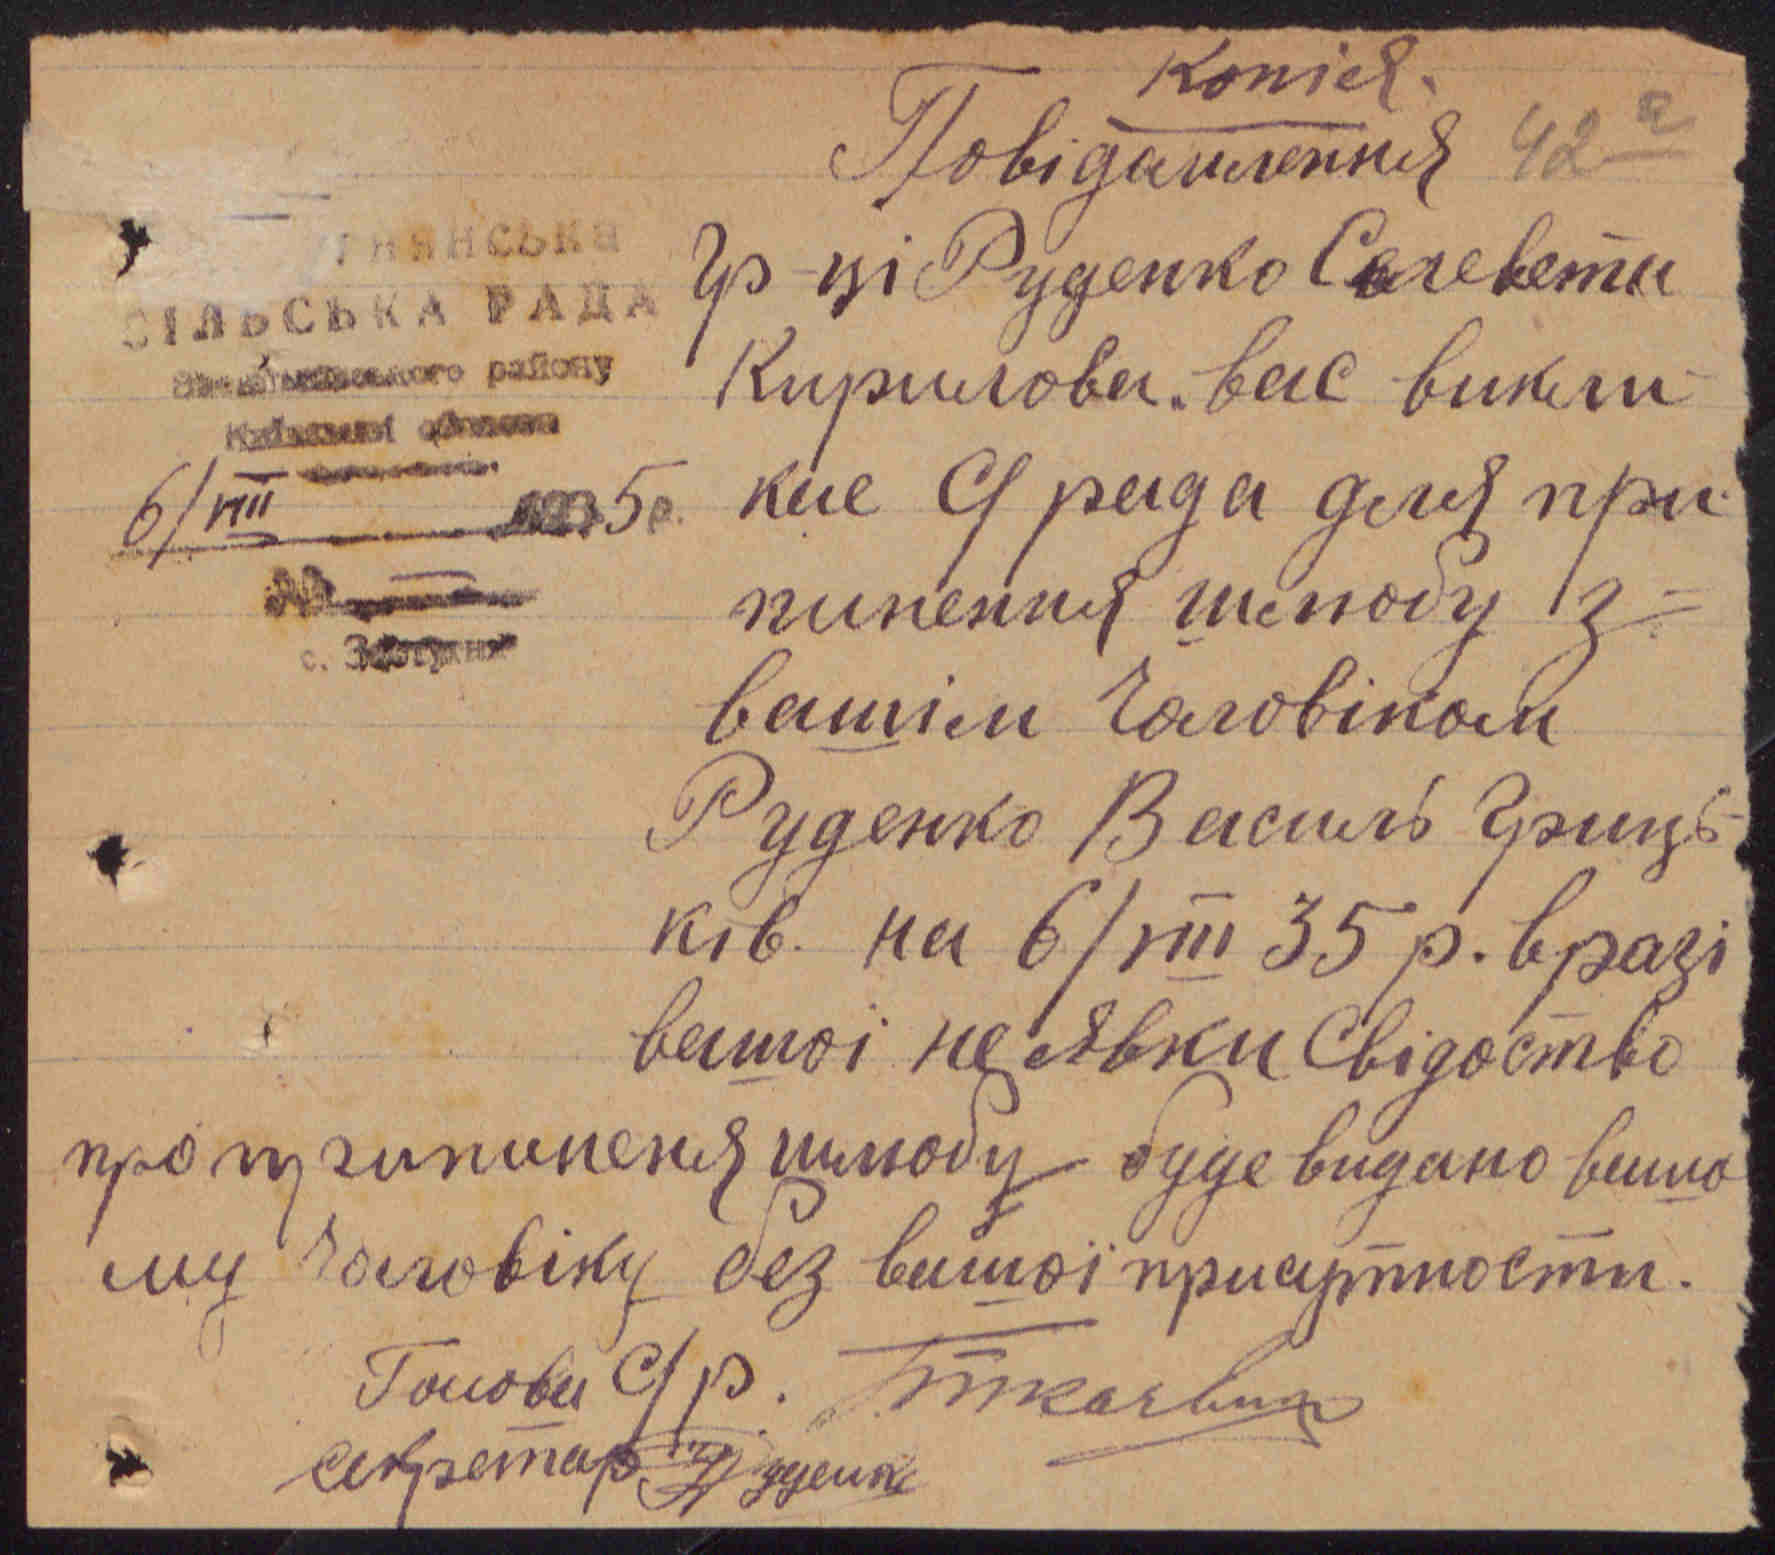 Копія.
Повідамлення 42а
СІЛЬСЬКА РАДА
району
6/VIII 1935 р.
с.
Гр-ці Руденко Селевети
Кирилова. вас викли
кає С/рада для при
пинення шлюбу з=
вашім Чоловіком
Руденко Василь Гриць-
ків. на 6/VIII 35 р. в разі
вашоі не явки Свідоство
про презапинення шлюбу буде видано вашо
му Чоловіку без вашоі присутности.
Голова С/р.
секретар Руденко